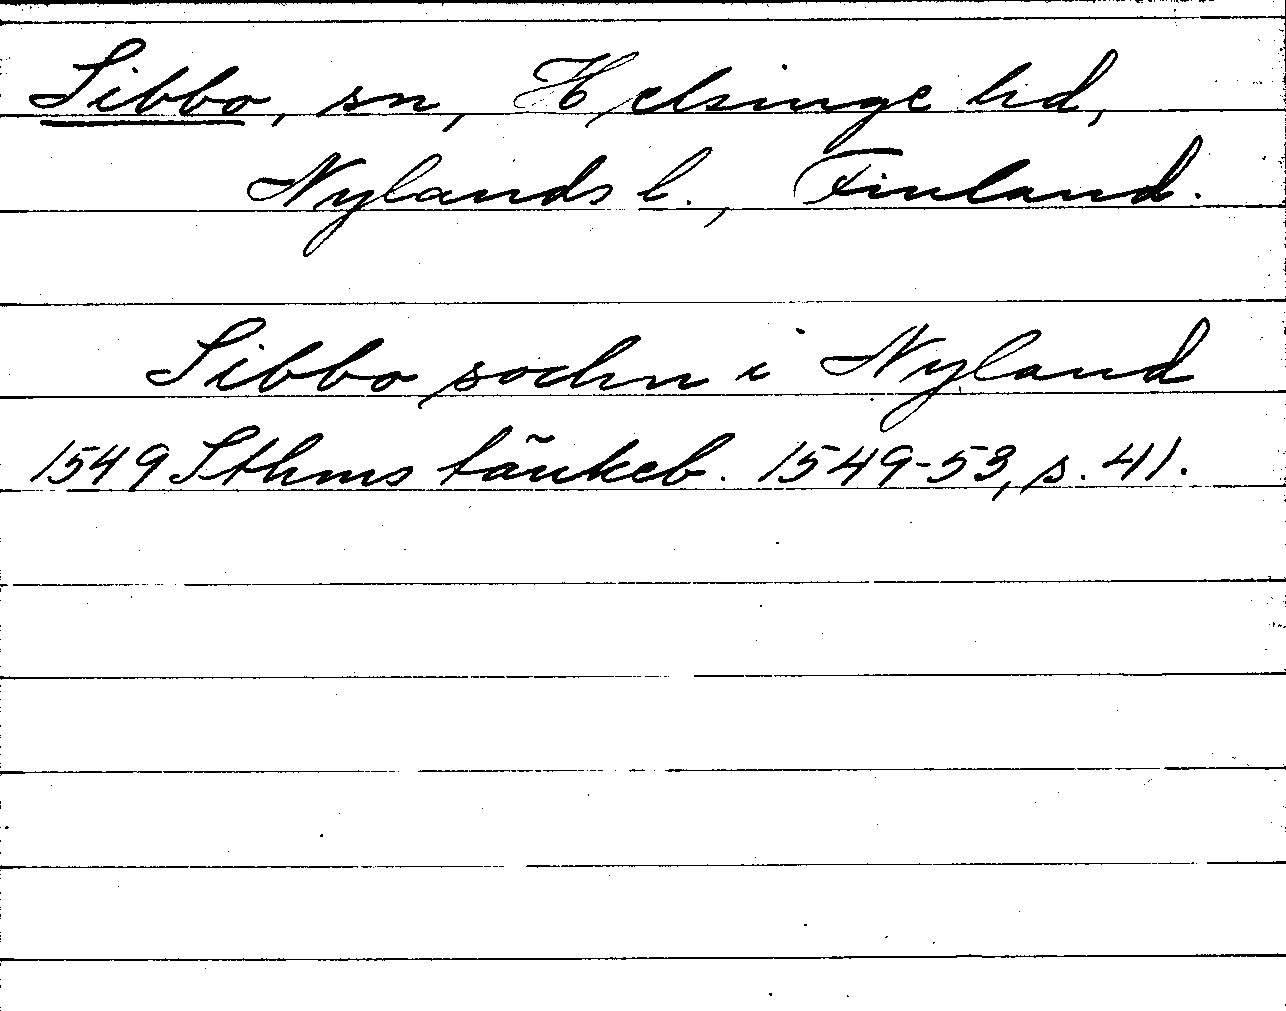 Sibbo, sn, Helsinge hd,
Nylands l., Finland.
Sibbo sochn i Nyland
1549 Sthms tänkeb. 1549-53, s. 41.